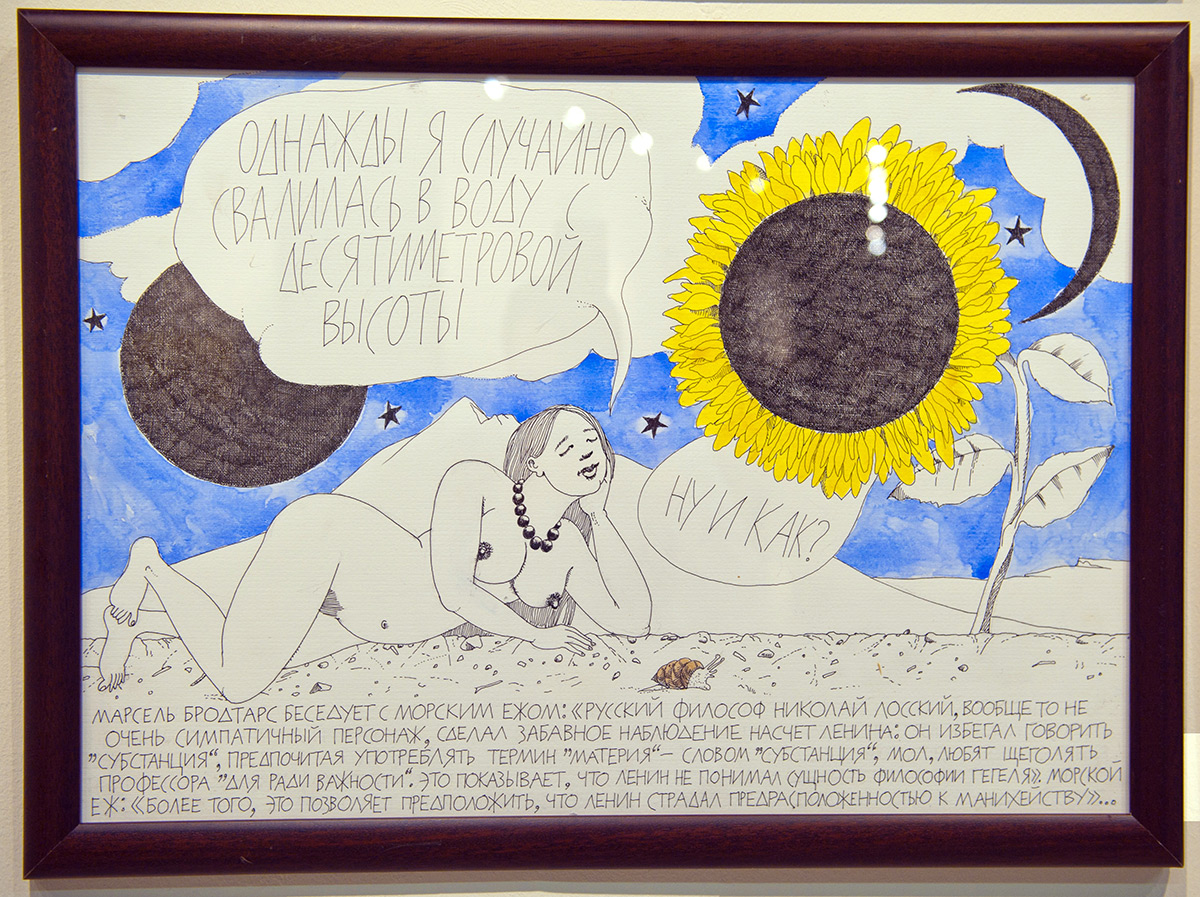 ОДНАЖДЫ Я СЛУЧАЙНО
СВАЛИЛАСЬ В ВОДУ С
ДЕСЯТИМЕТРОВОЙ
ВЫСОТЫ
НУ И КАК?
МАРСЕЛЬ БРОДТАРС БЕСЕДУЕТ С МОРСКИМ ЕЖОМ: «РУССКИЙ ФИЛОСОФ НИКОЛАЙ ЛОССКИЙ, ВООБЩЕ ТО НЕ
ОЧЕНЬ СИМПАТИЧНЫЙ ПЕРСОНАЖ, СДЕЛАЛ ЗАБАВНОЕ НАБЛЮДЕНИЕ НАСЧЕТ ЛЕНИНА: ОН ИЗБЕГАЛ ГОВОРИТЬ
"СУБСТАНЦИЯ", ПРЕДПОЧИТАЯ УПОТРЕБЛЯТЬ ТЕРМИН "МАТЕРИЯ" – СЛОВОМ "СУБСТАНЦИЯ", МОЛ, ЛЮБЯТ ЩЕГОЛЯТЬ
ПРОФЕССОРА "ДЛЯ РАДИ ВАЖНОСТИ". ЭТО ПОКАЗЫВАЕТ, ЧТО ЛЕНИН НЕ ПОНИМАЛ СУЩНОСТЬ ФИЛОСОФИИ ГЕГЕЛЯ». МОРСКОЙ
ЕЖ: «БОЛЕЕ ТОГО, ЭТО ПОЗВОЛЯЕТ ПРЕДПОЛОЖИТЬ, ЧТО ЛЕНИН СТРАДАЛ ПРЕДРАСПОЛОЖЕННОСТЬЮ К МАНИХЕЙСТВУ»...